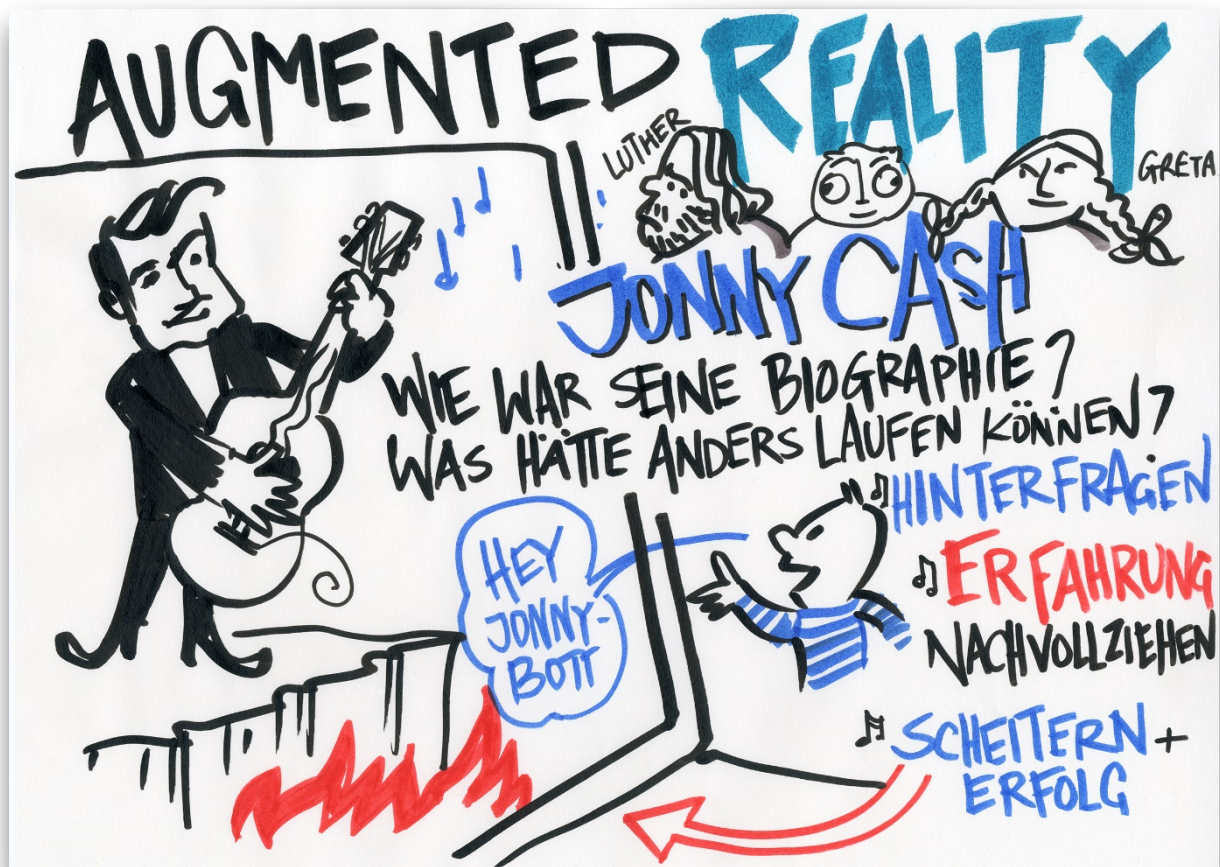 AUGMENTED REALITY
LUTHER
GRETA
JONNY CASH
WIE WAR SEINE BIOGRAPHIE?
WAS HÄTTE ANDERS LAUFEN KÖNNEN?
HEY
JONNY-
BOTT
HINTERFRAGEN
ERFAHRUNG
NACHVOLLZIEHEN
SCHEITERN +
ERFOLG